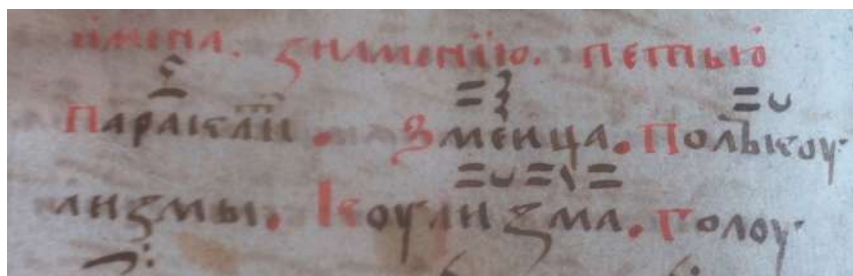 имена. знамением. петью
Параклит. Змеица. Полъкоу
лизмы. Коулизма. Голоу